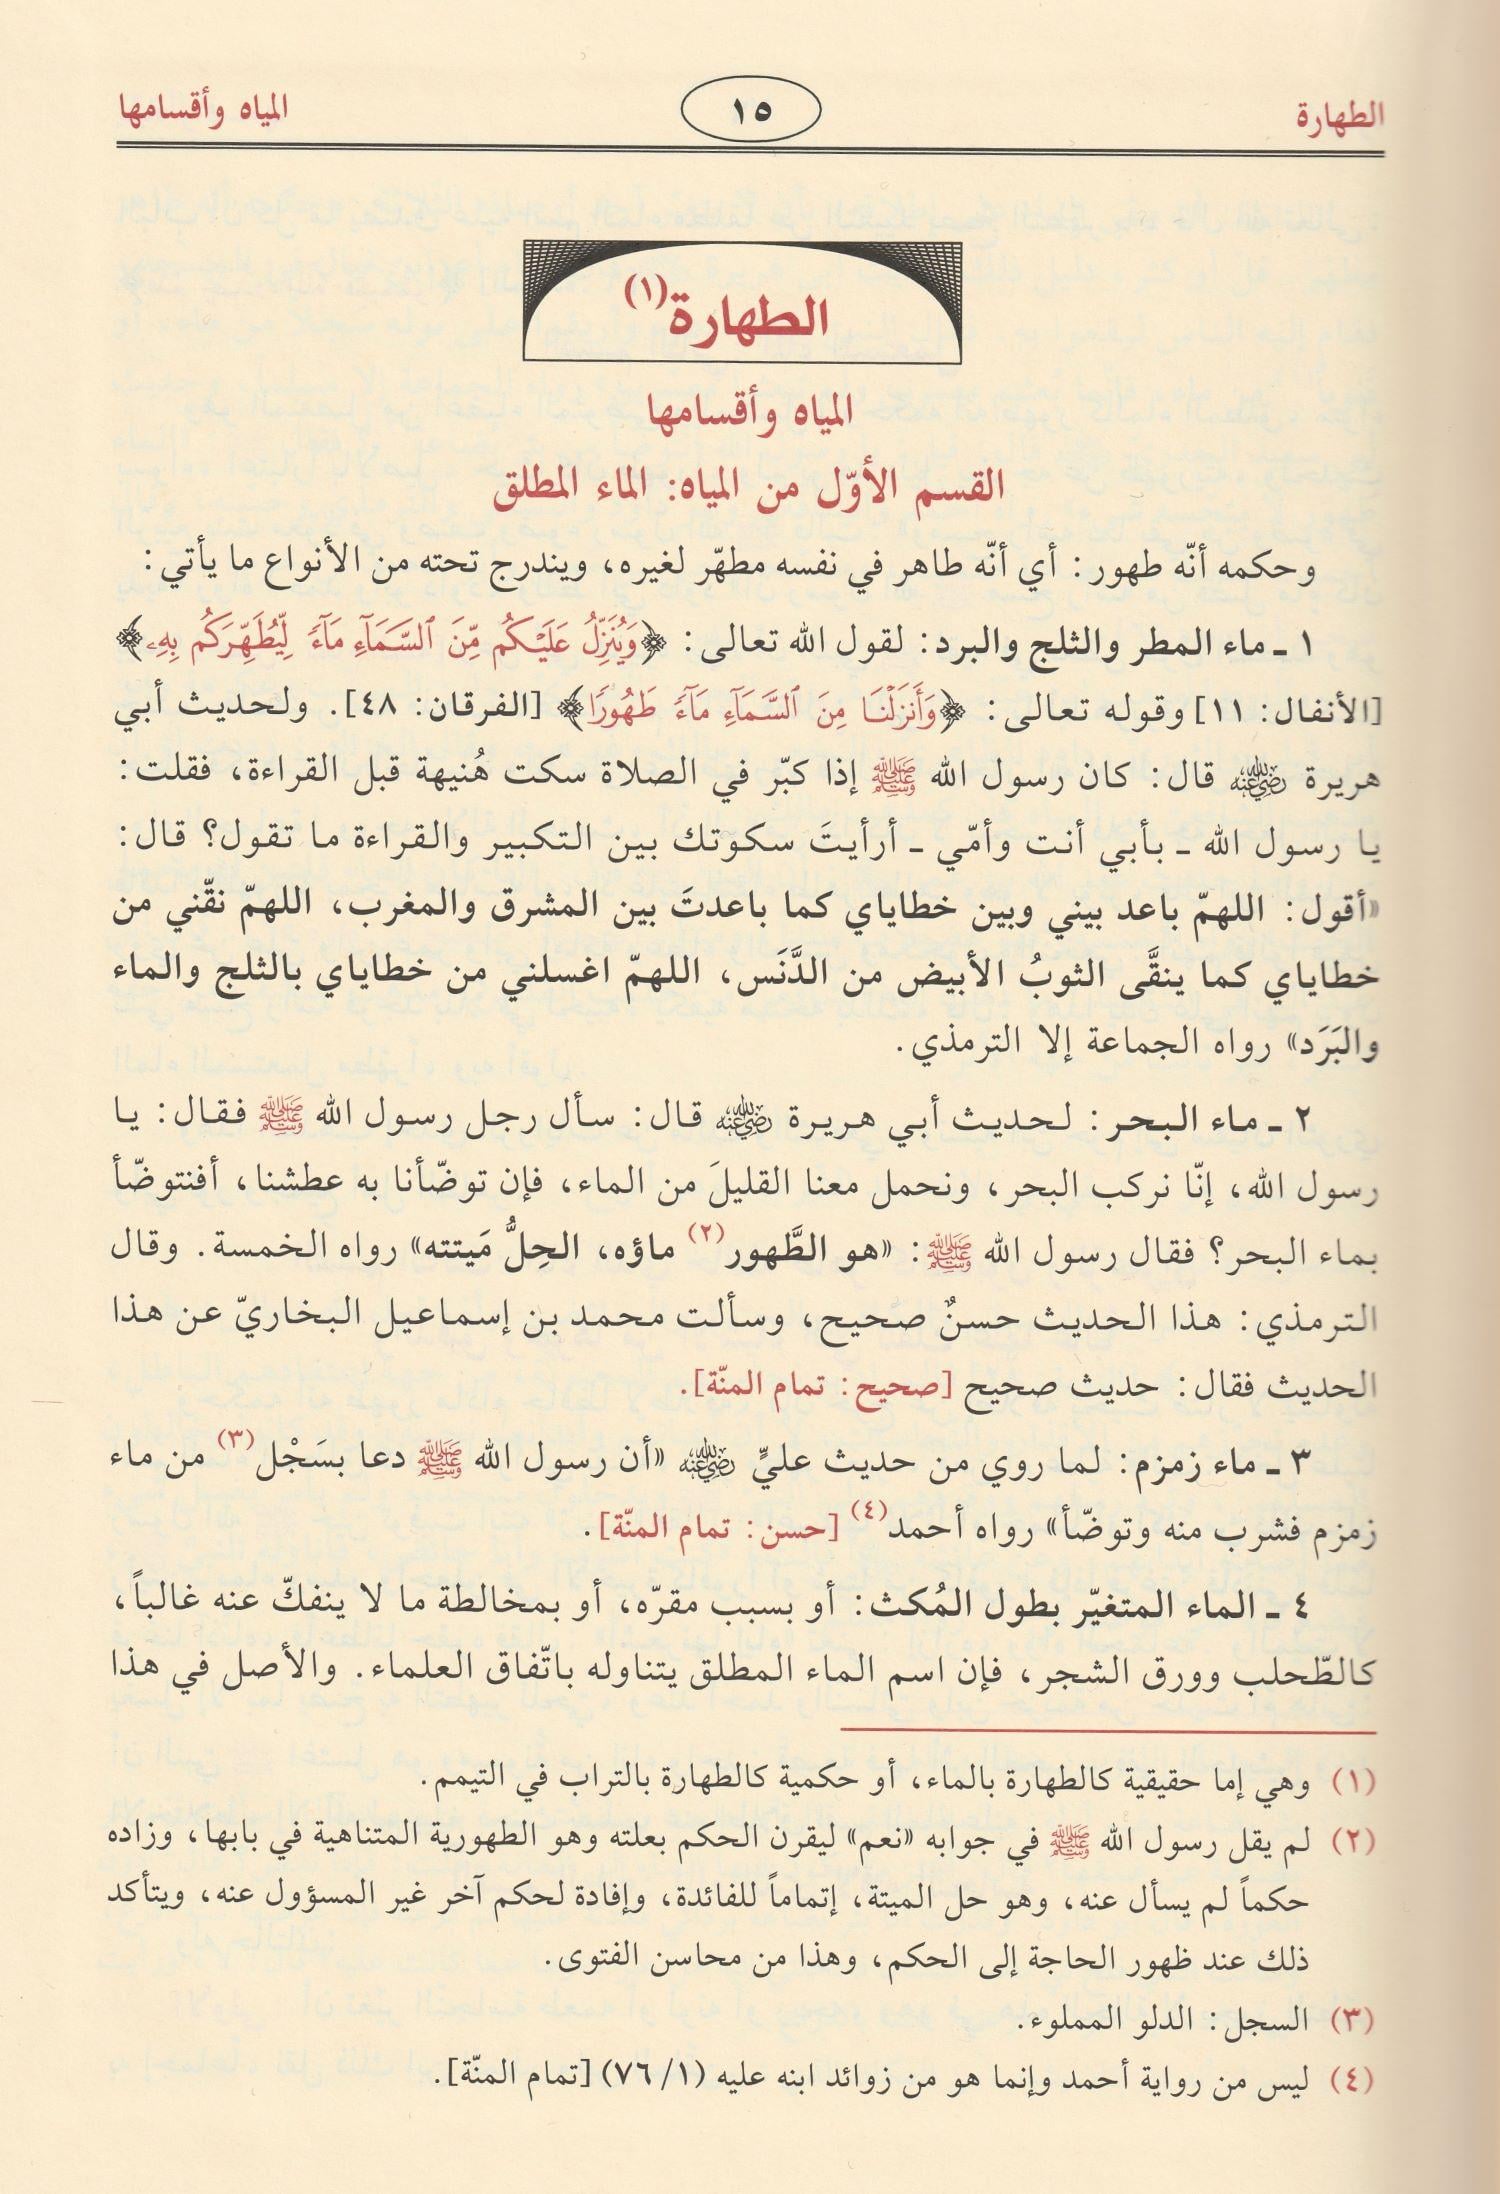 الطهارة
١٥
المياه وأقسامها
الطهارة(١)
المياه وأقسامها
القسم الأوّل من المياه: الماء المطلق
وحكمه أنّه طهور: أي أنّه طاهر في نفسه مطهّر لغيره، ويندرج تحته من الأنواع ما يأتي:
١ ـ ماء المطر والثلج والبرد: لقول الله تعالى: ﴿وَيُنَزِّلُ عَلَيْكُم مِّنَ ٱلسَّمَآءِ مَآءً لِّيُطَهِّرَكُم بِهِۦ﴾
[الأنفال: ١١] وقوله تعالى: ﴿وَأَنزَلْنَا مِنَ ٱلسَّمَآءِ مَآءً طَهُورًا﴾ [الفرقان: ٤٨]. ولحديث أبي
هريرة رضي الله عنه قال: كان رسول الله ﷺ إذا كبّر في الصلاة سكت هُنيهة قبل القراءة، فقلت:
يا رسول الله ـ بأبي أنت وأمّي ـ أرأيتَ سكوتك بين التكبير والقراءة ما تقول؟ قال:
«أقول: اللهمّ باعد بيني وبين خطاياي كما باعدتَ بين المشرق والمغرب، اللهمّ نقّني من
خطاياي كما ينقَّى الثوبُ الأبيض من الدَّنَس، اللهمّ اغسلني من خطاياي بالثلج والماء
والبَرَد» رواه الجماعة إلا الترمذي.
٢ ـ ماء البحر: لحديث أبي هريرة رضي الله عنه قال: سأل رجل رسول الله ﷺ فقال: يا
رسول الله، إنّا نركب البحر، ونحمل معنا القليلَ من الماء، فإن توضّأنا به عطشنا، أفنتوضّأ
بماء البحر؟ فقال رسول الله ﷺ: «هو الطَّهور(٢) ماؤه، الحِلُّ مَيتته» رواه الخمسة. وقال
الترمذي: هذا الحديث حسنٌ صحيح، وسألت محمد بن إسماعيل البخاريّ عن هذا
الحديث فقال: حديث صحيح [صحيح: تمام المنّة].
٣ ـ ماء زمزم: لما روي من حديث عليٍّ رضي الله عنه «أن رسول الله ﷺ دعا بسَجْل(٣) من ماء
زمزم فشرب منه وتوضّأ» رواه أحمد(٤) [حسن: تمام المنّة].
٤ ـ الماء المتغيّر بطول المُكث: أو بسبب مقرّه، أو بمخالطة ما لا ينفكّ عنه غالباً،
كالطّحلب وورق الشجر، فإن اسم الماء المطلق يتناوله باتّفاق العلماء. والأصل في هذا
(١) وهي إما حقيقية كالطهارة بالماء، أو حكمية كالطهارة بالتراب في التيمم.
(٢) لم يقل رسول الله ﷺ في جوابه «نعم» ليقرن الحكم بعلته وهو الطهورية المتناهية في بابها، وزاده
حكماً لم يسأل عنه، وهو حل الميتة، إتماماً للفائدة، وإفادة لحكم آخر غير المسؤول عنه، ويتأكد
ذلك عند ظهور الحاجة إلى الحكم، وهذا من محاسن الفتوى.
(٣) السجل: الدلو المملوء.
(٤) ليس من رواية أحمد وإنما هو من زوائد ابنه عليه (١/ ٧٦) [تمام المنّة].